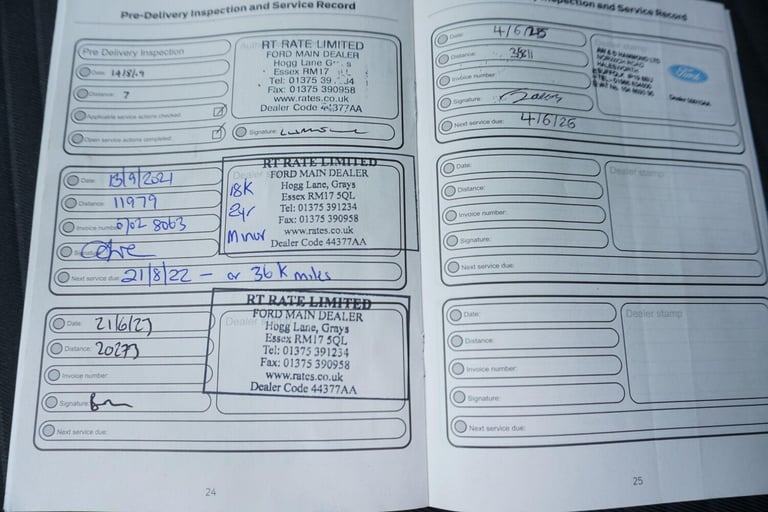 Pre-Delivery Inspection and Service Record
Pre Delivery Inspection
Date:
Distance: 7
Applicable service actions checked:
Open service actions completed:
RT RATE LIMITED
FORD MAIN DEALER
Hogg Lane
Essex RM17
Tel: 01375
Fax: 01375 390958
www.rates.co.uk
Dealer Code 44377AA
Signature:
Date: 13/9/2021
Distance: 11979
Invoice number: 8063
Signature:
Next service due: 21/8/22 - or 36K miles
18K
2yr
Minor
RT RATE LIMITED
FORD MAIN DEALER
Hogg Lane, Grays
Essex RM17 5QL
Tel: 01375 391234
Fax: 01375 390958
www.rates.co.uk
Dealer Code 44377AA
Date: 21/6/23
Distance: 20273
Invoice number:
Signature:
Next service due:
RT RATE LIMITED
FORD MAIN DEALER
Hogg Lane, Grays
Essex RM17 5QL
Tel: 01375 391234
Fax: 01375 390958
www.rates.co.uk
Dealer Code 44377AA
24
Inspection and Service Record
Date: 4/6/25
Distance:
Invoice number:
Signature:
Next service due: 4/6/26
NORWICH ROAD
HALESWORTH
Ford
Date:
Distance:
Invoice number:
Signature:
Next service due:
Dealer stamp
Date:
Distance:
Invoice number:
Signature:
Next service due:
Dealer stamp
25